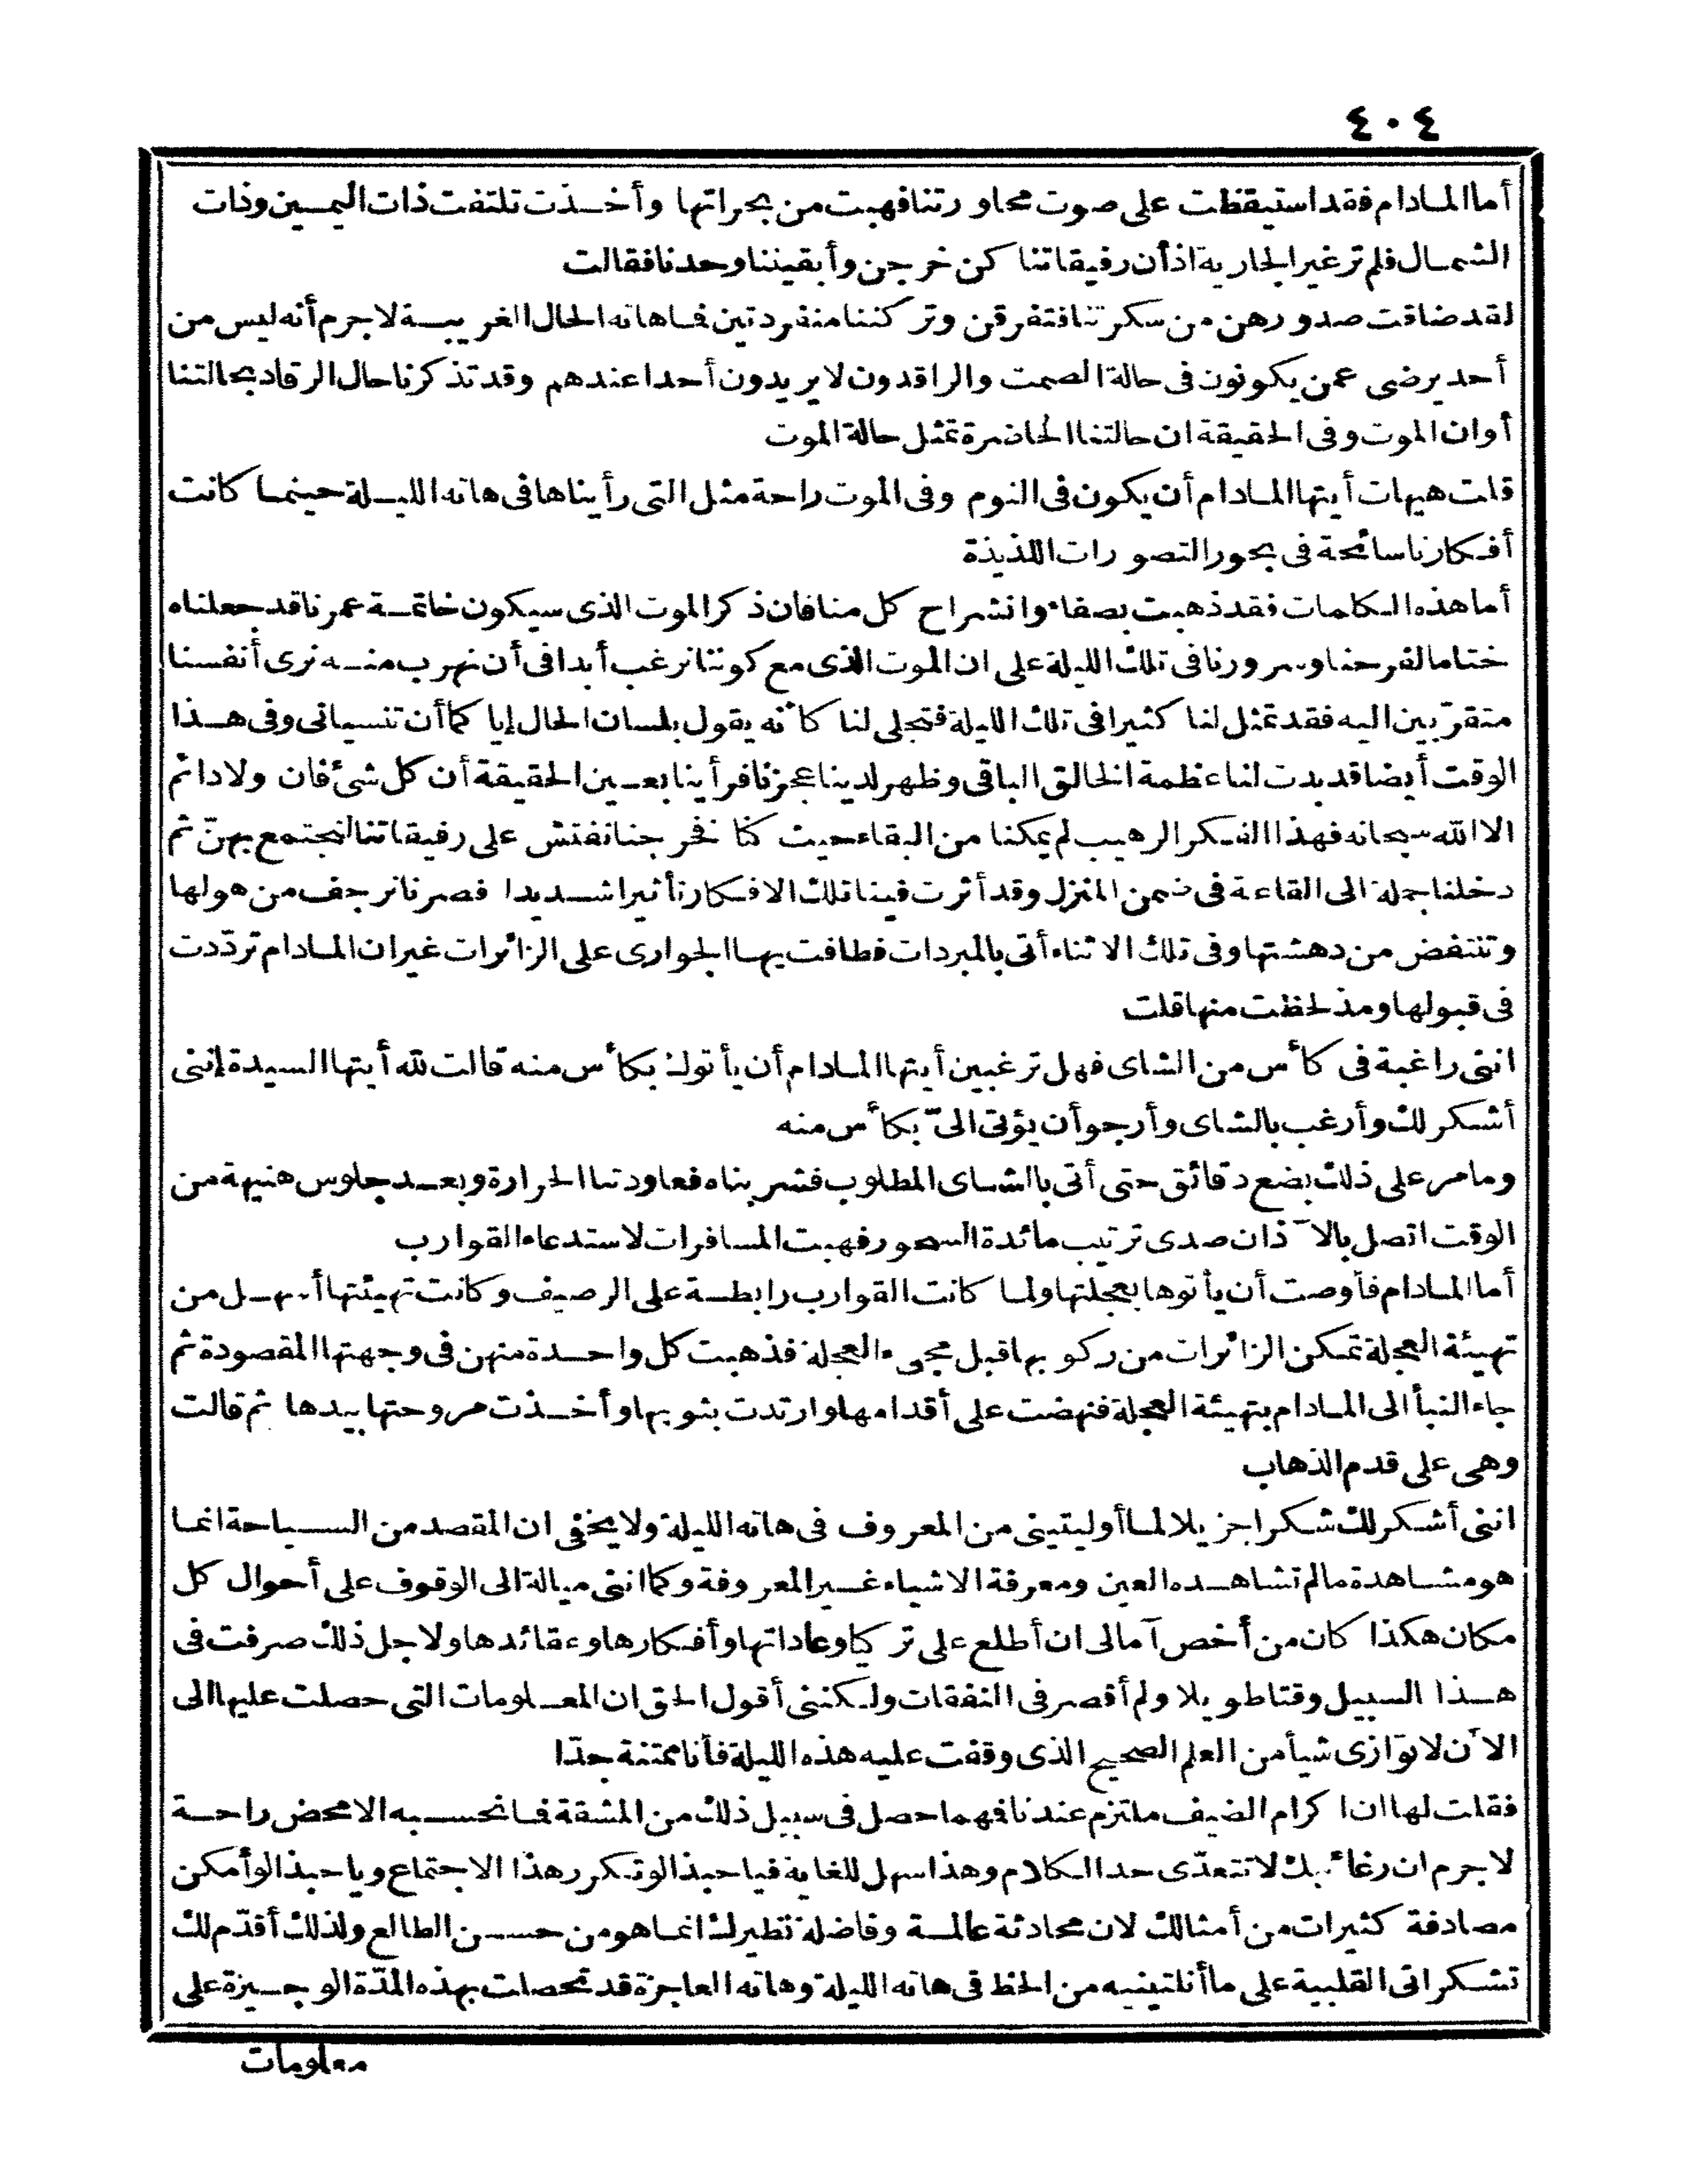 ٤٠٤
أما المادام فقد استيقظت على صوت محاورتنا فهبت من بحراتها وأخذت تلتفت ذات اليمين وذات
الشمال فلم تر غير الجارية اذ أن رفيقاتنا كن خرجن وأبقيننا وحدنا فقالت
لقد ضاقت صدورهن من سكرتنا فتفرقن وتركننا منفردتين فاهاته الحال الغريبة لاجرم أنه ليس من
أحد يرضى عمن يكونون فى حالة الصمت والراقدون لا يريدون أحدا عندهم وقد تذكرنا حال الرقاد بحالتنا
أوان الموت وفى الحقيقة ان حالتنا الحاضرة تمثل حالة الموت
قلت هيهات أيتها المادام أن يكون فى النوم وفى الموت راحة مثل التى رأيناها فى هاته الليلة حينما كانت
أفكارنا سائحة فى بحور التصورات اللذيذة
أما هذه الكلمات فقد ذهبت بصفاء وانشراح كل منا فان ذكر الموت الذى سيكون خاتمة عمرنا قد جعلناه
ختاما لفرحنا وسرورنا فى تلك الليلة على ان الموت الذى مع كوننا نرغب أبدا فى أن نهرب منه نرى أنفسنا
متقرّبين اليه فقد تمثل لنا كثيرا فى تلك الليلة فتجلى لنا كأنه يقول بلسان الحال إيا كما أن تنسيانى وفى هذا
الوقت أيضا قد بدت لنا عظمة الخالق الباقى وظهر لدينا عجزنا فرأينا بعين الحقيقة أن كل شئ فان ولا دائم
الا الله سبحانه فهذا الفكر الرهيب لم يمكنا من البقاء حيث كنا فخرجنا نفتش على رفيقاتنا لنجتمع بهنّ ثم
دخلنا جملة الى القاعة فى ضمن المنزل وقد أثرت فينا تلك الافكار تأثيرا شديدا فصرنا نرجف من هولها
وتنتفض من دهشتها وفى تلك الاثناء أتى بالمبردات فطافت بها الجوارى على الزائرات غير ان المادام تردّدت
فى قبولها ومذ لحظت منها قلت
اننى راغبة فى كأس من الشاى فهل ترغبين أيتها المادام أن يأتوك بكأس منه قالت لله أيتها السيدة إننى
أشكرلك وأرغب بالشاى وأرجو أن يؤتى الىّ بكأس منه
وما مر على ذلك بضع دقائق حتى أتى بالشاى المطلوب فشربناه فعاودتنا الحرارة وبعد جلوس هنيهة من
الوقت اتصل بالآذان صدى ترتيب مائدة السحور فهبت المسافرات لاستدعاء القوارب
أما المادام فأوصت أن يأتوها بعجلتها ولما كانت القوارب رابطة على الرصيف وكانت تهيئتها أسهل من
تهيئة العجلة تمكن الزائرات من ركوبها قبل مجىء العجلة فذهبت كل واحدة منهن فى وجهتها المقصودة ثم
جاء النبأ الى المادام بتهيئة العجلة فنهضت على أقدامها وارتدت بثوبها وأخذت مروحتها بيدها ثم قالت
وهى على قدم الذهاب
اننى أشكرلك شكرا جزيلا لما أوليتينى من المعروف فى هاته الليلة ولا يخفى ان المقصد من السياحة انما
هو مشاهدة مالم تشاهده العين ومعرفة الاشياء غير المعروفة وكما اننى ميالة الى الوقوف على أحوال كل
مكان هكذا كان من أخص آمالى ان أطلع على تركيا وعاداتها وأفكارها وعقائدها ولاجل ذلك صرفت فى
هذا السبيل وقتا طويلا ولم أقصر فى النفقات ولكننى أقول الحق ان المعلومات التى حصلت عليها الى
الآن لا توازى شيأ من العلم الصحيح الذى وقفت عليه هذه الليلة فأنا ممتنة جدّا
فقلت لها ان اكرام الضيف ملتزم عندنا فهما حصل فى سبيل ذلك من المشقة فانحسبه الا محض راحة
لا جرم ان رغائبك لا تتعدّى حد الكلام وهذا سهل للغاية فيا حبذا لو تكرر هذا الاجتماع ويا حبذا لو أمكن
مصادفة كثيرات من أمثالك لان محادثة عالمة وفاضلة نظيرك انما هو من حسن الطالع ولذلك أقدّم لك
تشكراتى القلبية على ما أنلتينيه من الحظ فى هاته الليلة وهاته العاجزة قد تحصلت بهذه المدّة الوجيزة على
معلومات